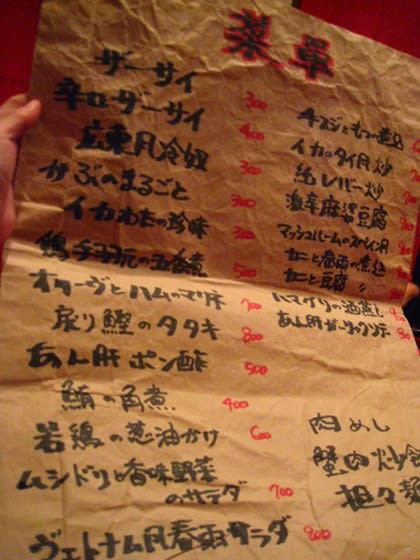 菜單
ザーサイ 300
辛口ザーサイ 400
広東風冷奴 300
かぶのまるごと 300
イカわたの珍味 300
鶏チチ玩の五香煮 500
オリーヴとハムのマリネ 700
戻り鰹のタタキ 800
あん肝ポン酢 500
鮪の角煮 400
若鶏の葱油かけ 600
ムシドリと香味野菜
のサラダ 700
ヴェトナム風春雨サラダ 800
牛スジともつの煮込
イカのタイ風炒
純レバー炒
激辛麻婆豆腐
マッシュルームのスペイン風
カニと春雨の煮込
カニと豆腐 〃
ハマグリの酒蒸し
あん肝ガーリックソテー
肉めし
蟹肉炒飯
担々麺